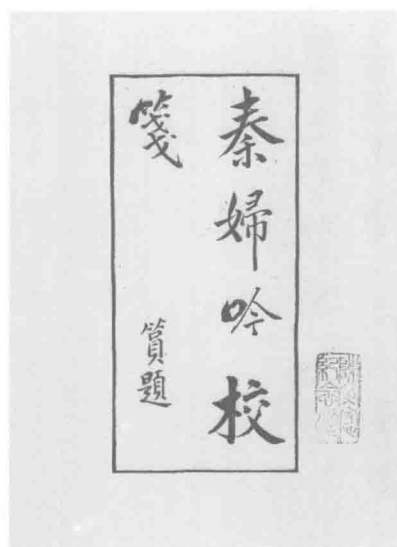 秦婦吟校
箋
篔題